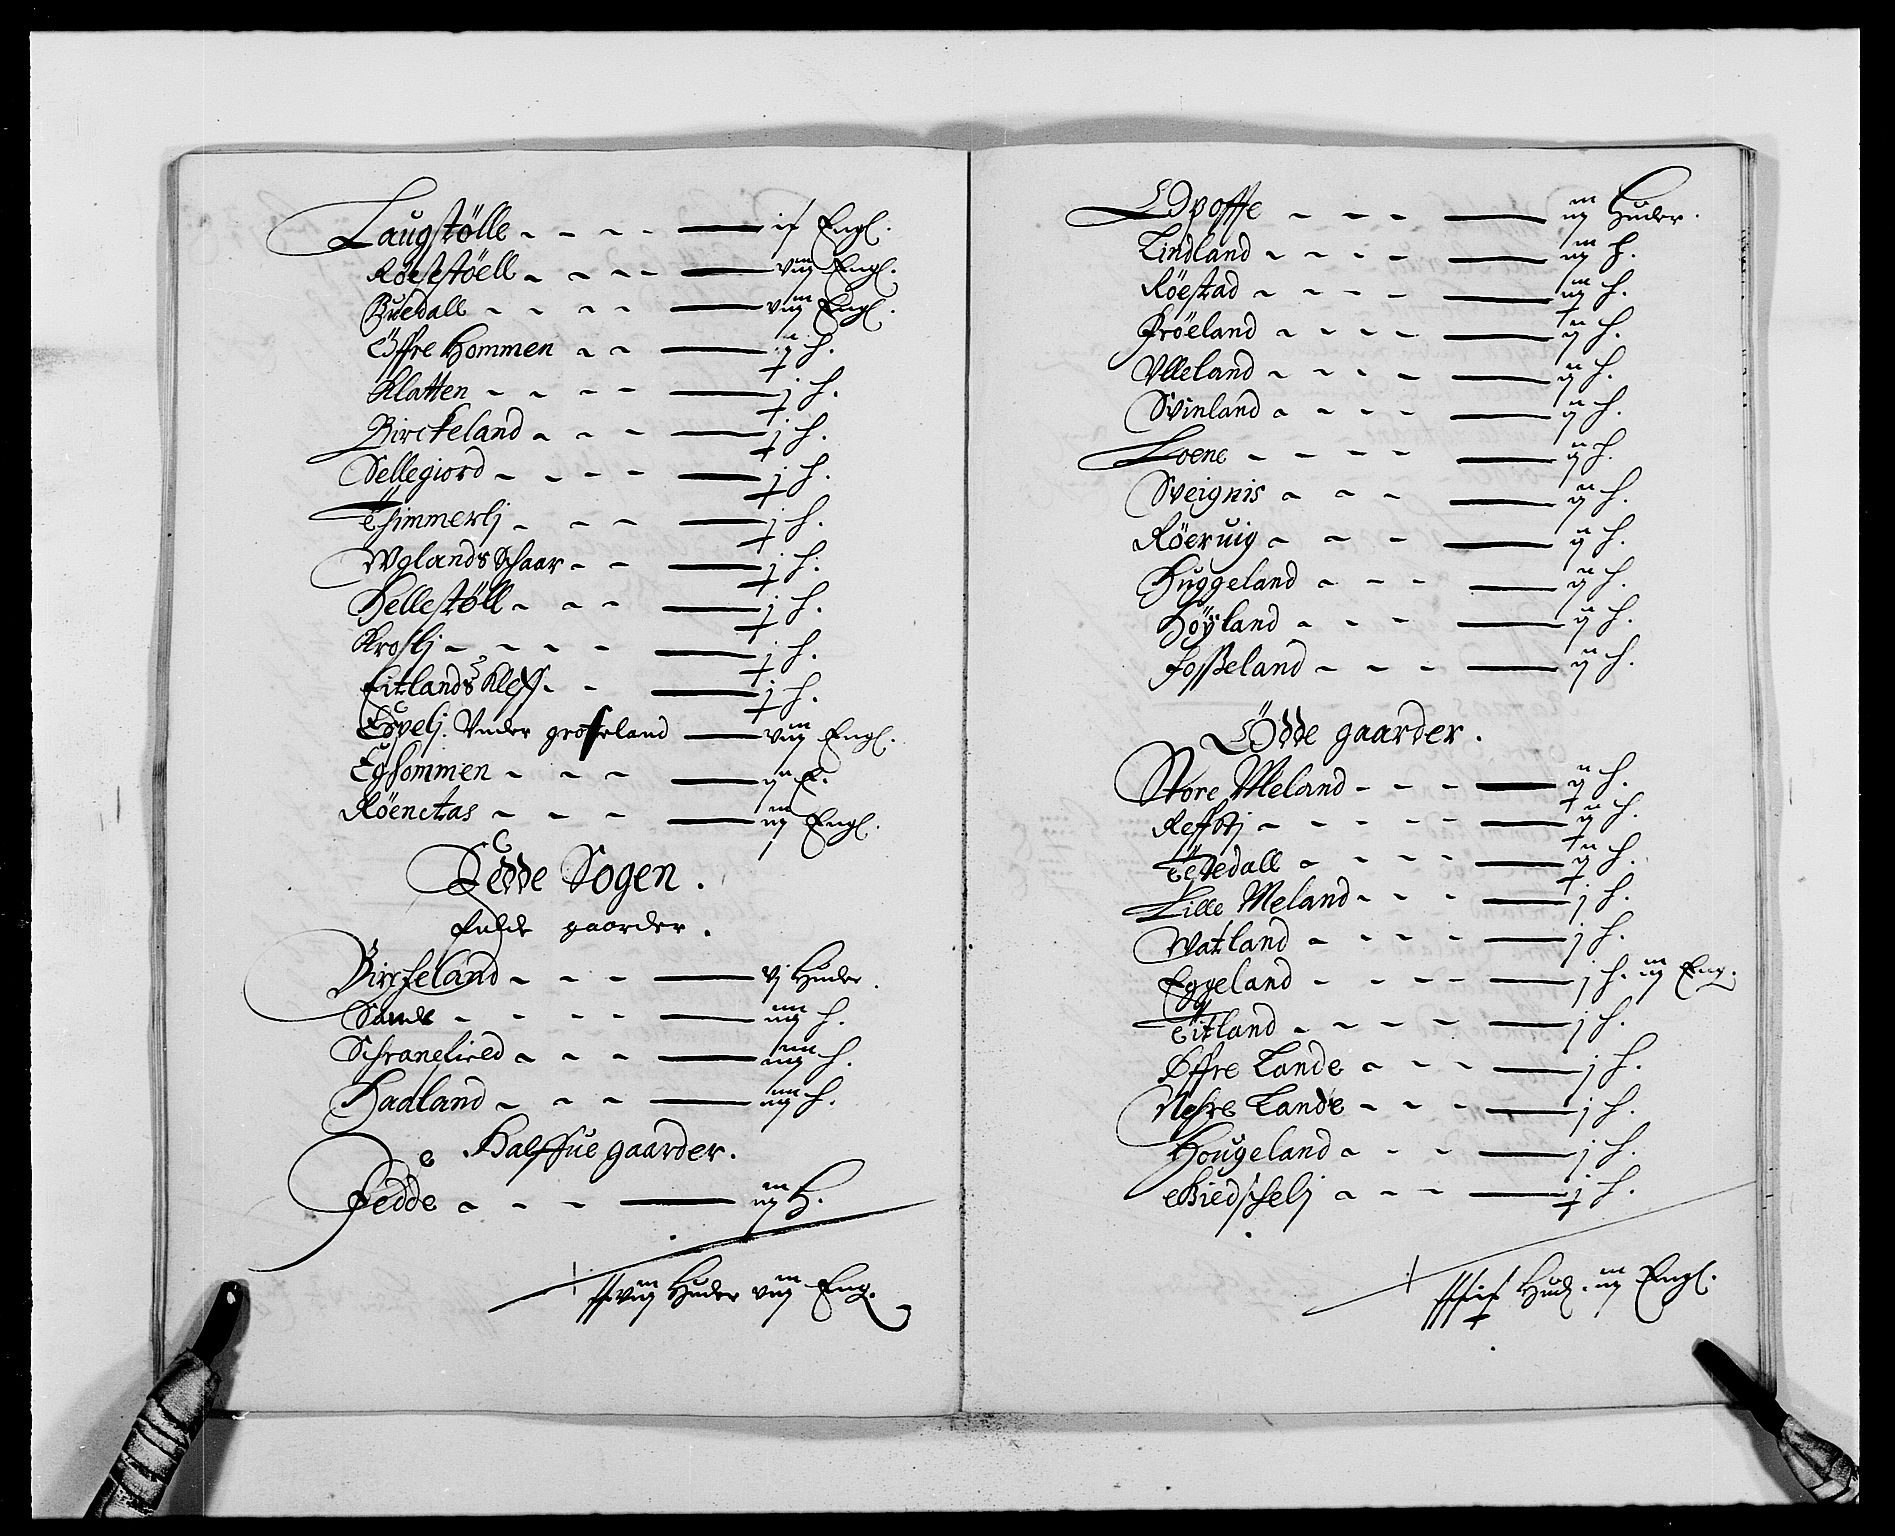 Laugstölle - - - - — ix Engl.
Röestöell - - - - — viij Engl.
Buedall - - - - — viij Engl.
Öffre Hommen - - — ij h.
Klatten - - - - — j h.
Birckeland - - - - — j h.
Sellegiord - - - - — j h.
Thimmerlj - - - — j h.
Wglands Schaar - - — j h.
Hellestöll - - - — j h.
Kroslj - - - - - — j h.
Eitlands Kleff - - — j h.
Espelj. Vnder groseland — viij Engl.
Eghommen - - - — ij E.
Röenctas - - - - — iij Engl.
Fedde Sogen.
Fulde gaarder.
Birckeland - - - — vj Huder.
Sande - - - - — iiij h.
Schranefield - - - — iiij h.
Haaland - - - — iiij h.
Halffue gaarder.
Fedde - - - — iij H.
xxviij Huder viij Eng.
Edpoffe - - - — iij Huder.
Lindland - - - - — iij h.
Röestad - - - - — iij h.
Fröeland - - - - — ij h.
Vlleland - - - - — ij h.
Svinland - - - - — ij h.
Loene - - - - — ij h.
Sveignis - - - — ij h.
Röeruig - - - — ij h.
Huggeland - - - — ij h.
Höyland - - - — ij h.
Fosseland - - - — ij h.
Ödde gaarder.
Store Meland - - - — ij h.
Reffstj - - - - - — ij h.
Tetedall - - - - — ij h.
Lille Meland - - - — j h.
Watland - - - - — j h.
Eggeland - - - - — j h. iij Eng.
Eitland - - - - — j h.
Öffre Lande - - - — j h.
Nehre Lande - - - — j h.
Hougeland - - - — j h.
Biedschelj - - - — j h.
xxxxix Hud. iij Engl.